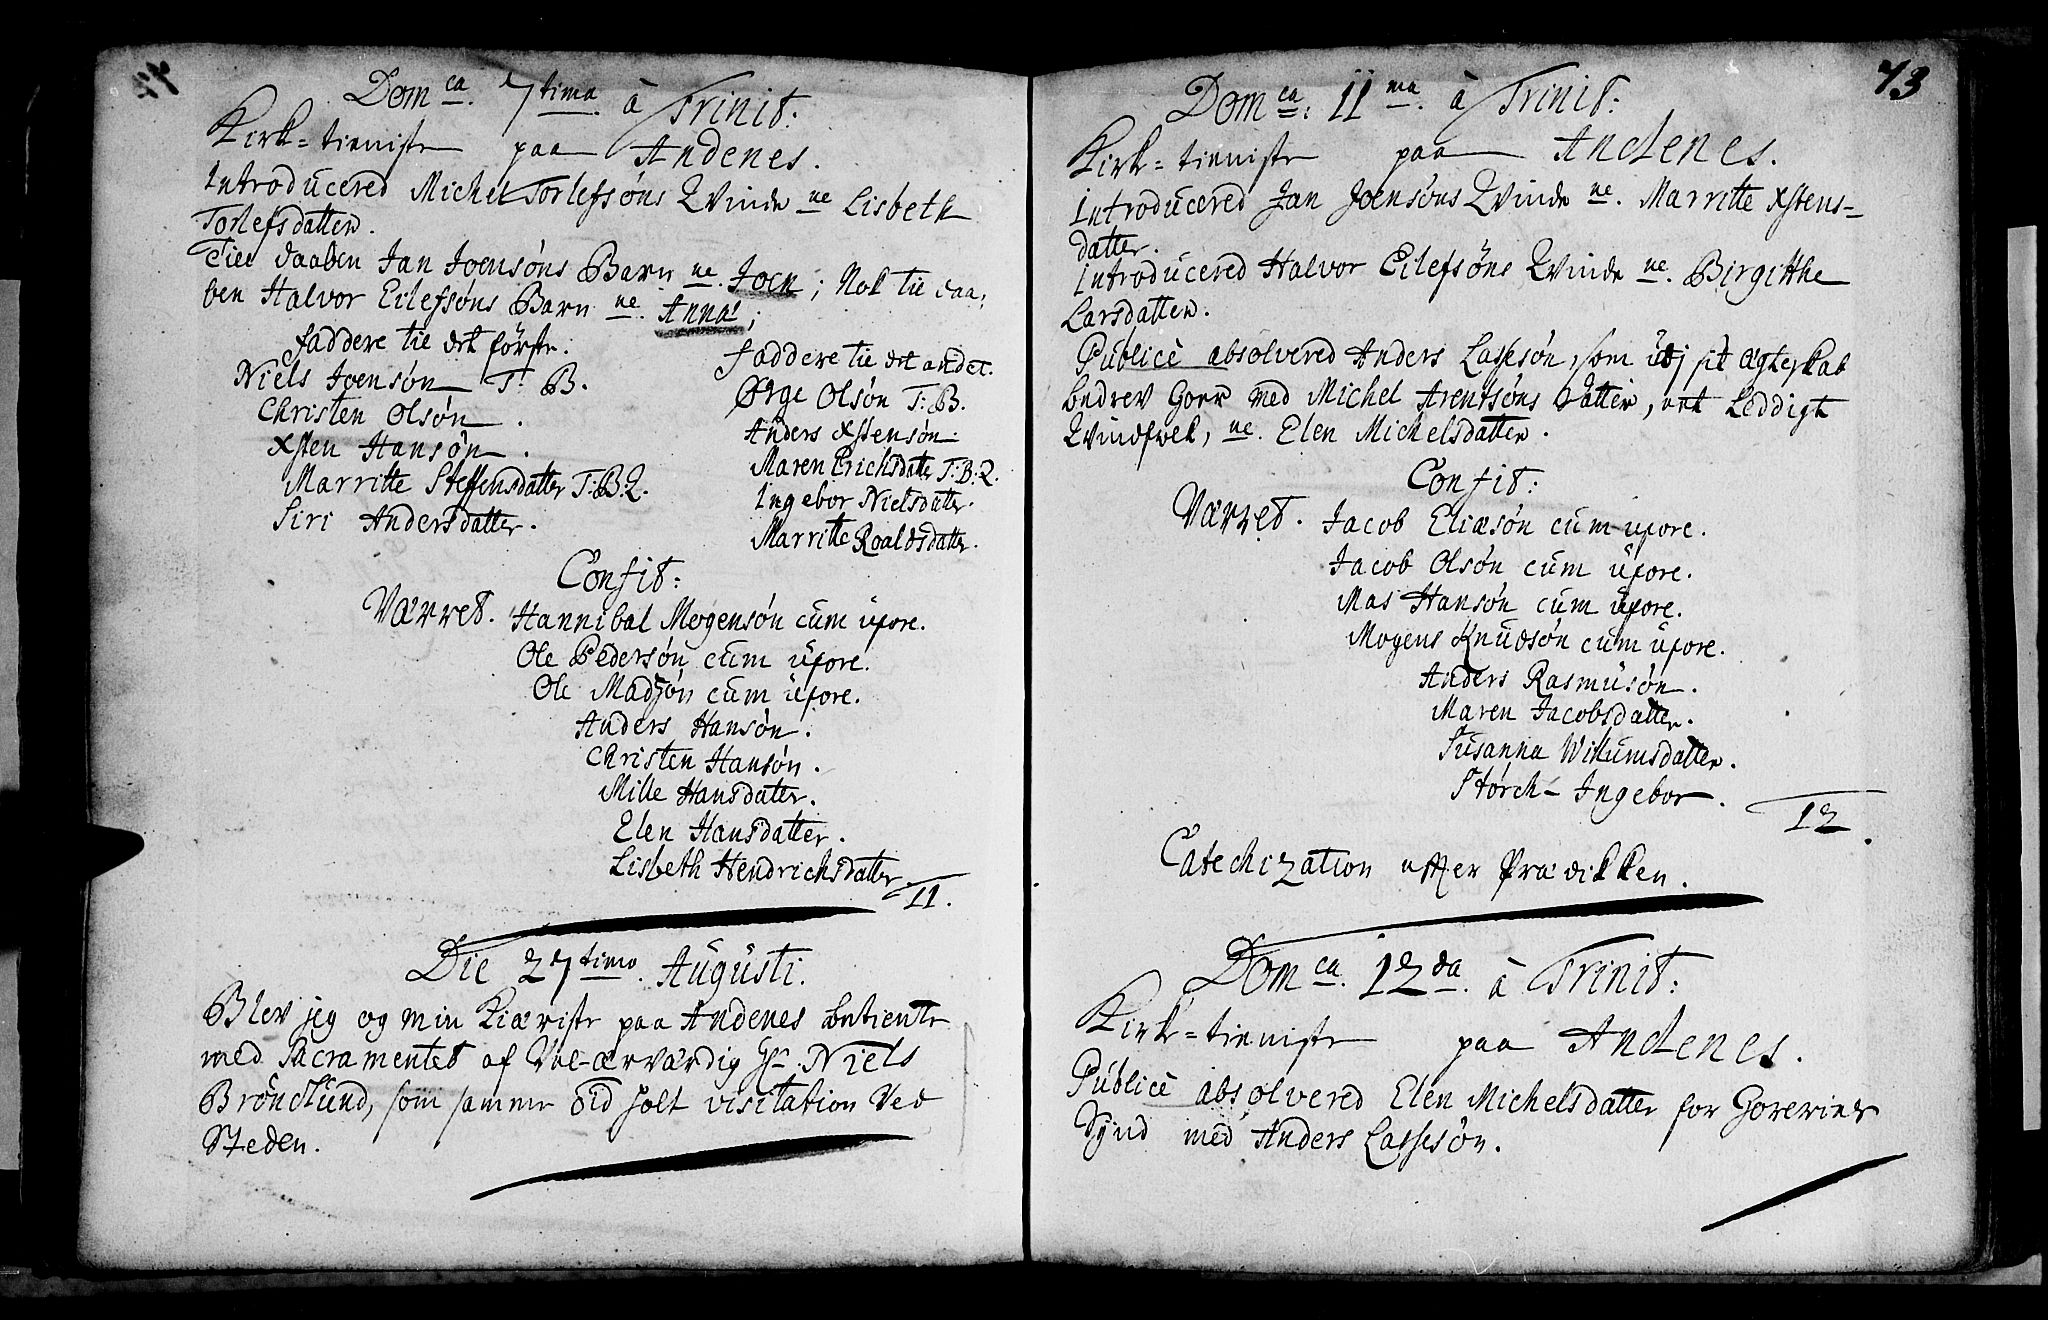 Dom ca. 7 tima à Trinit:
Kirk=tieniste paa Andenes.
Introducered Michel Torlefsøns Qvinde ne Lisbeth
Torlefsdatter.
Till daaben Jan Joensøns Barn ne. Joen; Nok til daa:
ben Halvor Eilefsøns Barn ne. Anna;
faddere til det første.
Niels Joensøn T: B.
Christen Olsøn.
Xsten Hansøn.
Marritte Steffensdatter T:B:Q.
Siri Andersdatter.
faddere til det andet.
Ørge Olsøn T: B.
Anders Xstensøn.
Maren Erichsdatter T:B:Q.
Ingebor Nielsdatter.
Marritte Roaldsdatter.
Confit:
Værret. Hannibal Mogensøn cum uxore.
Ole Pedersøn cum uxore.
Ole Madsøn cum uxore.
Anders Hansøn.
Christen Hansøn.
Mille Hansdatter.
Elen Hansdatter.
Lisbeth Hendrichsdatter
11.
Die 27 timo. Augusti.
Blev jeg og min Kiæriste paa Andenes betiente
med Sacramentet af Vel-ærværdig Hr. Niels
Brønlund, som samme tid holt visitation ved
Steden.
73
Dom ca: 11 ma. à Trinit:
Kirk=tieniste paa Andenes.
Introducered Jan Joensøns Qvinde ne. Marritte Xstens=
datter.
Introducered Halvor Eilefsøns Qvinde ne. Birgitthe
Larsdatter.
Publicè absolvered Anders Lassesøn, som udj sit Ægteskab
bedrev Hoer med Michel Arentsøns datter, et Leddigt
Qvindfolk, ne. Elen Michelsdatter.
Confit:
Værret. Jacob Eliæsøn cum uxore.
Jacob Olsøn cum uxore.
Mas Hansøn cum uxore.
Mogens Knudsøn cum uxore.
Anders Rasmusøn.
Maren Jacobsdatter.
Susanna Willumsdatter.
Størch-Ingebor.
12.
Catechization efter Prædikken.
Dom ca. 12 da. à Trinit:
Kirk=tieniste paa Andenes.
Publicè absolvered Elen Michelsdatter for Horeries
Synd med Anders Lassesøn.